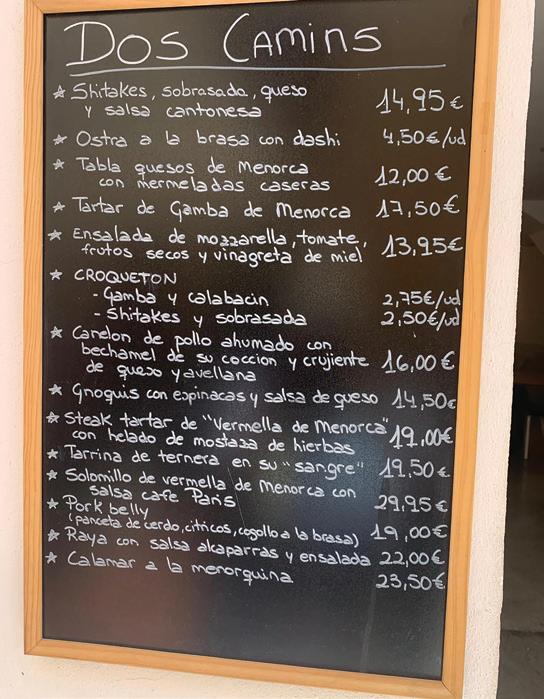 Dos Camins
☆ Shitakes, sobrasada, queso
y salsa cantonesa 14,95 €
★ Ostra a la brasa con dashi 4,50€/ud
★ Tabla quesos de Menorca
con mermeladas caseras 12,00 €
★ Tartar de Gamba de Menorca 17,50€
★ Ensalada de mozzarella, tomate,
frutos secos y vinagreta de miel 13,95€
★ CROQUETON
- Gamba y calabacin 2,75€/ud
- Shitakes y sobrasada 2,50€/ud
★ Canelon de pollo ahumado con
bechamel de su coccion y crujiente 16,00 €
de queso y avellana
★ Gnoquis con espinacas y salsa de queso 14,50€
★ Steak tartar de "Vermella de Menorca" 19,00€
con helado de mostaza de hierbas
★ Tarrina de ternera en su "sangre" 19,50 €
★ Solomillo de vermella de Menorca con
salsa cafe Paris 29,95 €
★ Pork belly
(panceta de cerdo, citricos, cogollo a la brasa) 19,00€
★ Raya con salsa alcaparras y ensalada 22,00€
★ Calamar a la menorquina 23,50€